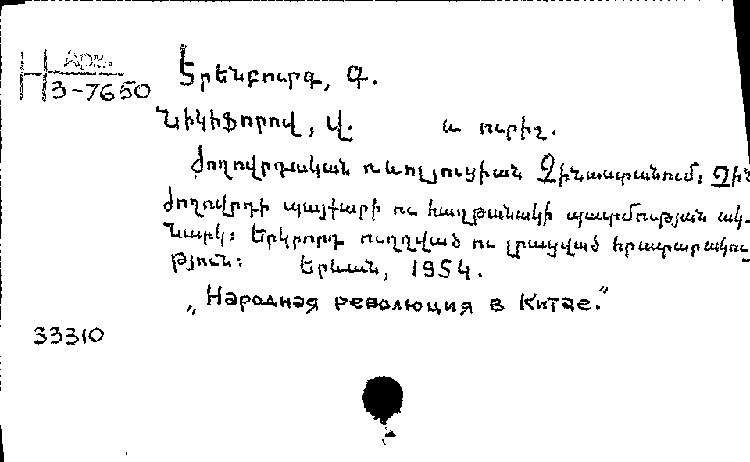 Н Арм.
3-7650
Երենբուրգ, Գ.
Նիկիֆորով, Վ. և ուրիշ.
Ժողովրդական ռևոլյուցիան Չինաստանում: Չին
ժողովրդի պայքարի ու հաղթանակի պատմության ակ-
նարկ: Երկրորդ ուղղված ու լրացված հրատարակու-
թյուն: Երևան, 1954.
„Народная революция в Китае."
33310